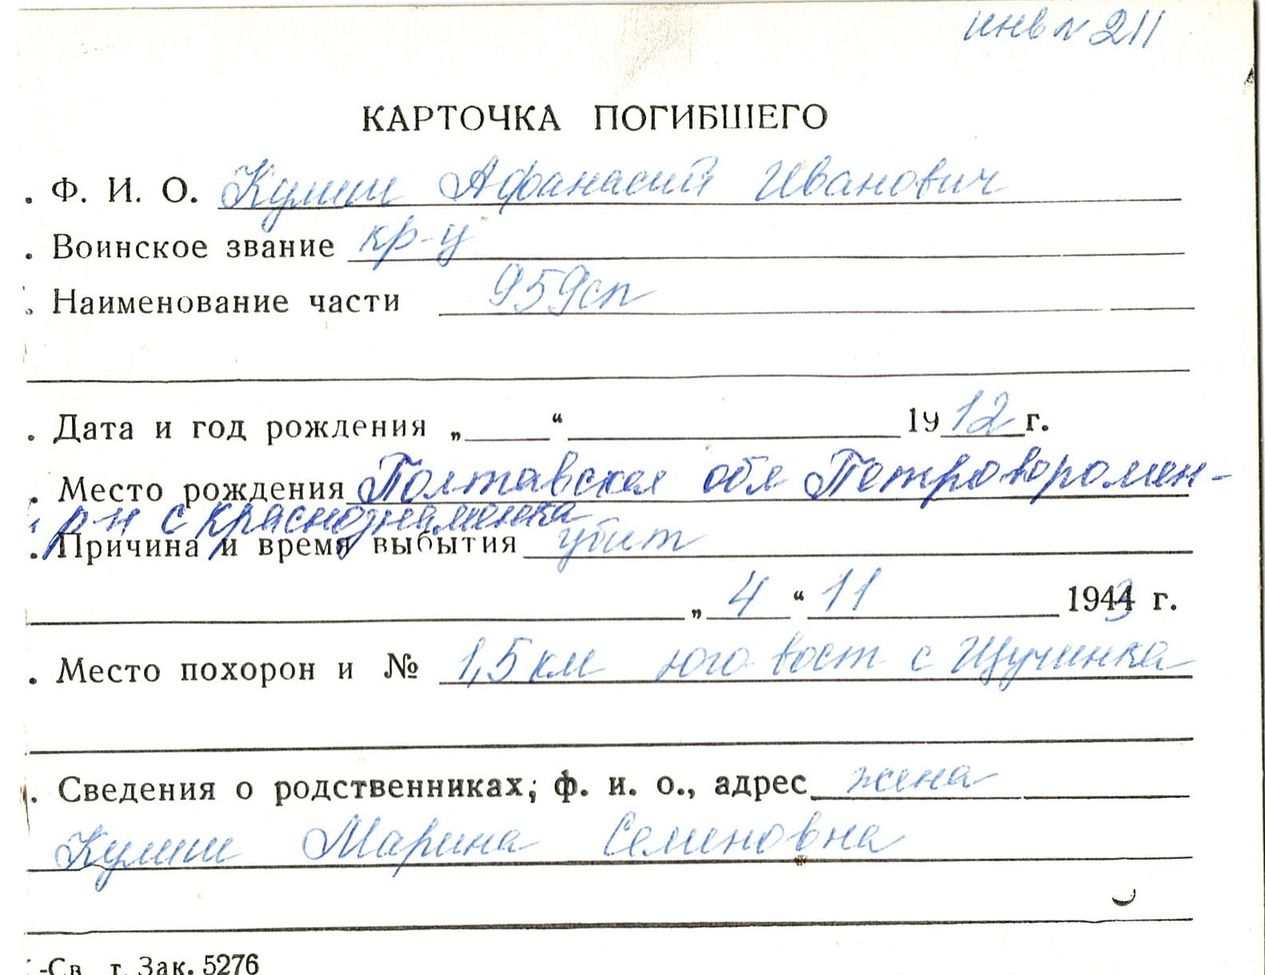 инв № 211
КАРТОЧКА ПОГИБШЕГО
. Ф. И. О. Кулиш Афанасий Иванович
. Воинское звание кр-ц
. Наименование части 959сп
. Дата и год рождения „ “ 1912 г.
. Место рождения Полтавская обл Петроворомен-
р-н с Краснознаменка
. Причина и время выбытия убит
„ 4 “ 11 1943 г.
. Место похорон и № 1,5 км юго вост с Щучинка
. Сведения о родственниках; ф. и. о., адрес жена
Кулиш Марина Семеновна
-Св. т. Зак. 5276